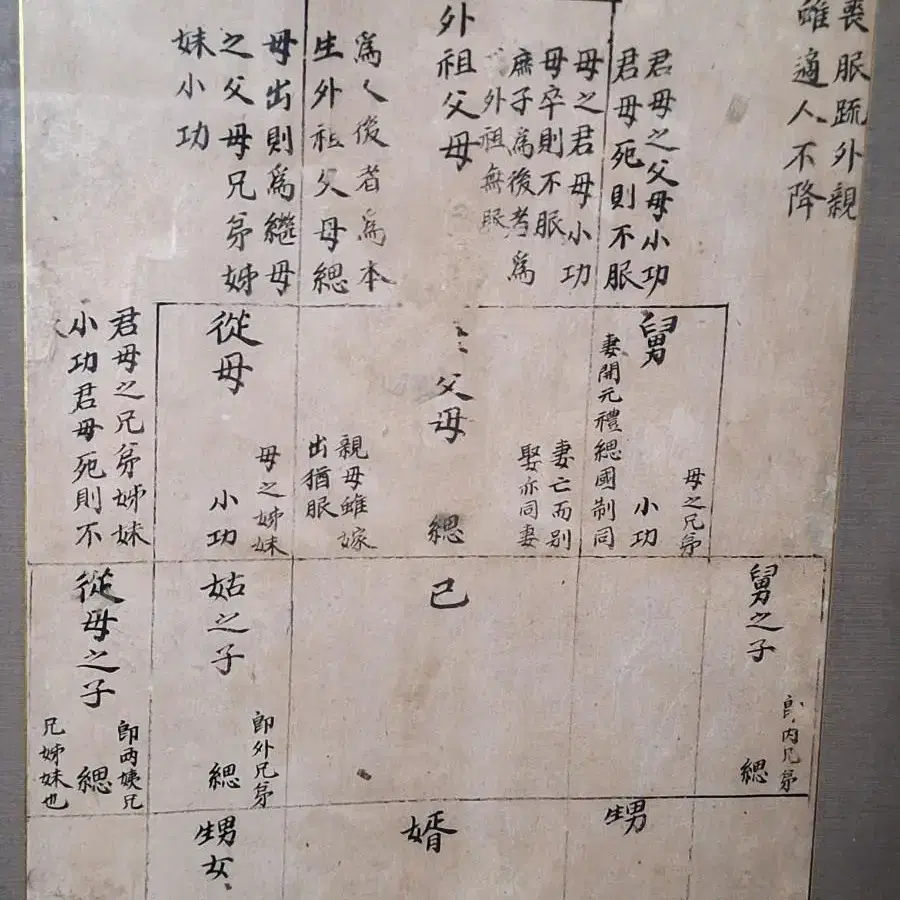 喪服疏外親
雖適人不降
君母之父母小功
君母死則不服
外祖父母
母之君母小功
母卒則不服
庶子爲後者爲
外祖無服
爲人後者爲本
生外祖父母緦
母出則爲繼母
之父母兄弟姊
妹小功
舅
母之兄弟
小功
妻開元禮緦國制同
父母
妻亡而別
娶亦同妻
緦
親母雖嫁
出猶服
從母
母之姊妹
小功
君母之兄弟姊妹
小功君母死則不
舅之子
卽内兄弟
緦
己
姑之子
卽外兄弟
緦
從母之子
卽两姨兄
緦
兄姊妹也
甥
婿
甥女